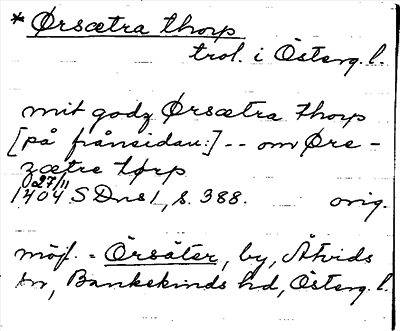 * Ørsætra thorp
trol. i Österg. l.
mit godz Ørsætra thorp
[på frånsidan:] -- om Øre-
zætre torp
27/11
1404 SDns 1, s. 388. orig.
möjl. = Örsäter, by, Åtvids
sn, Bankekinds hd, Österg. l.